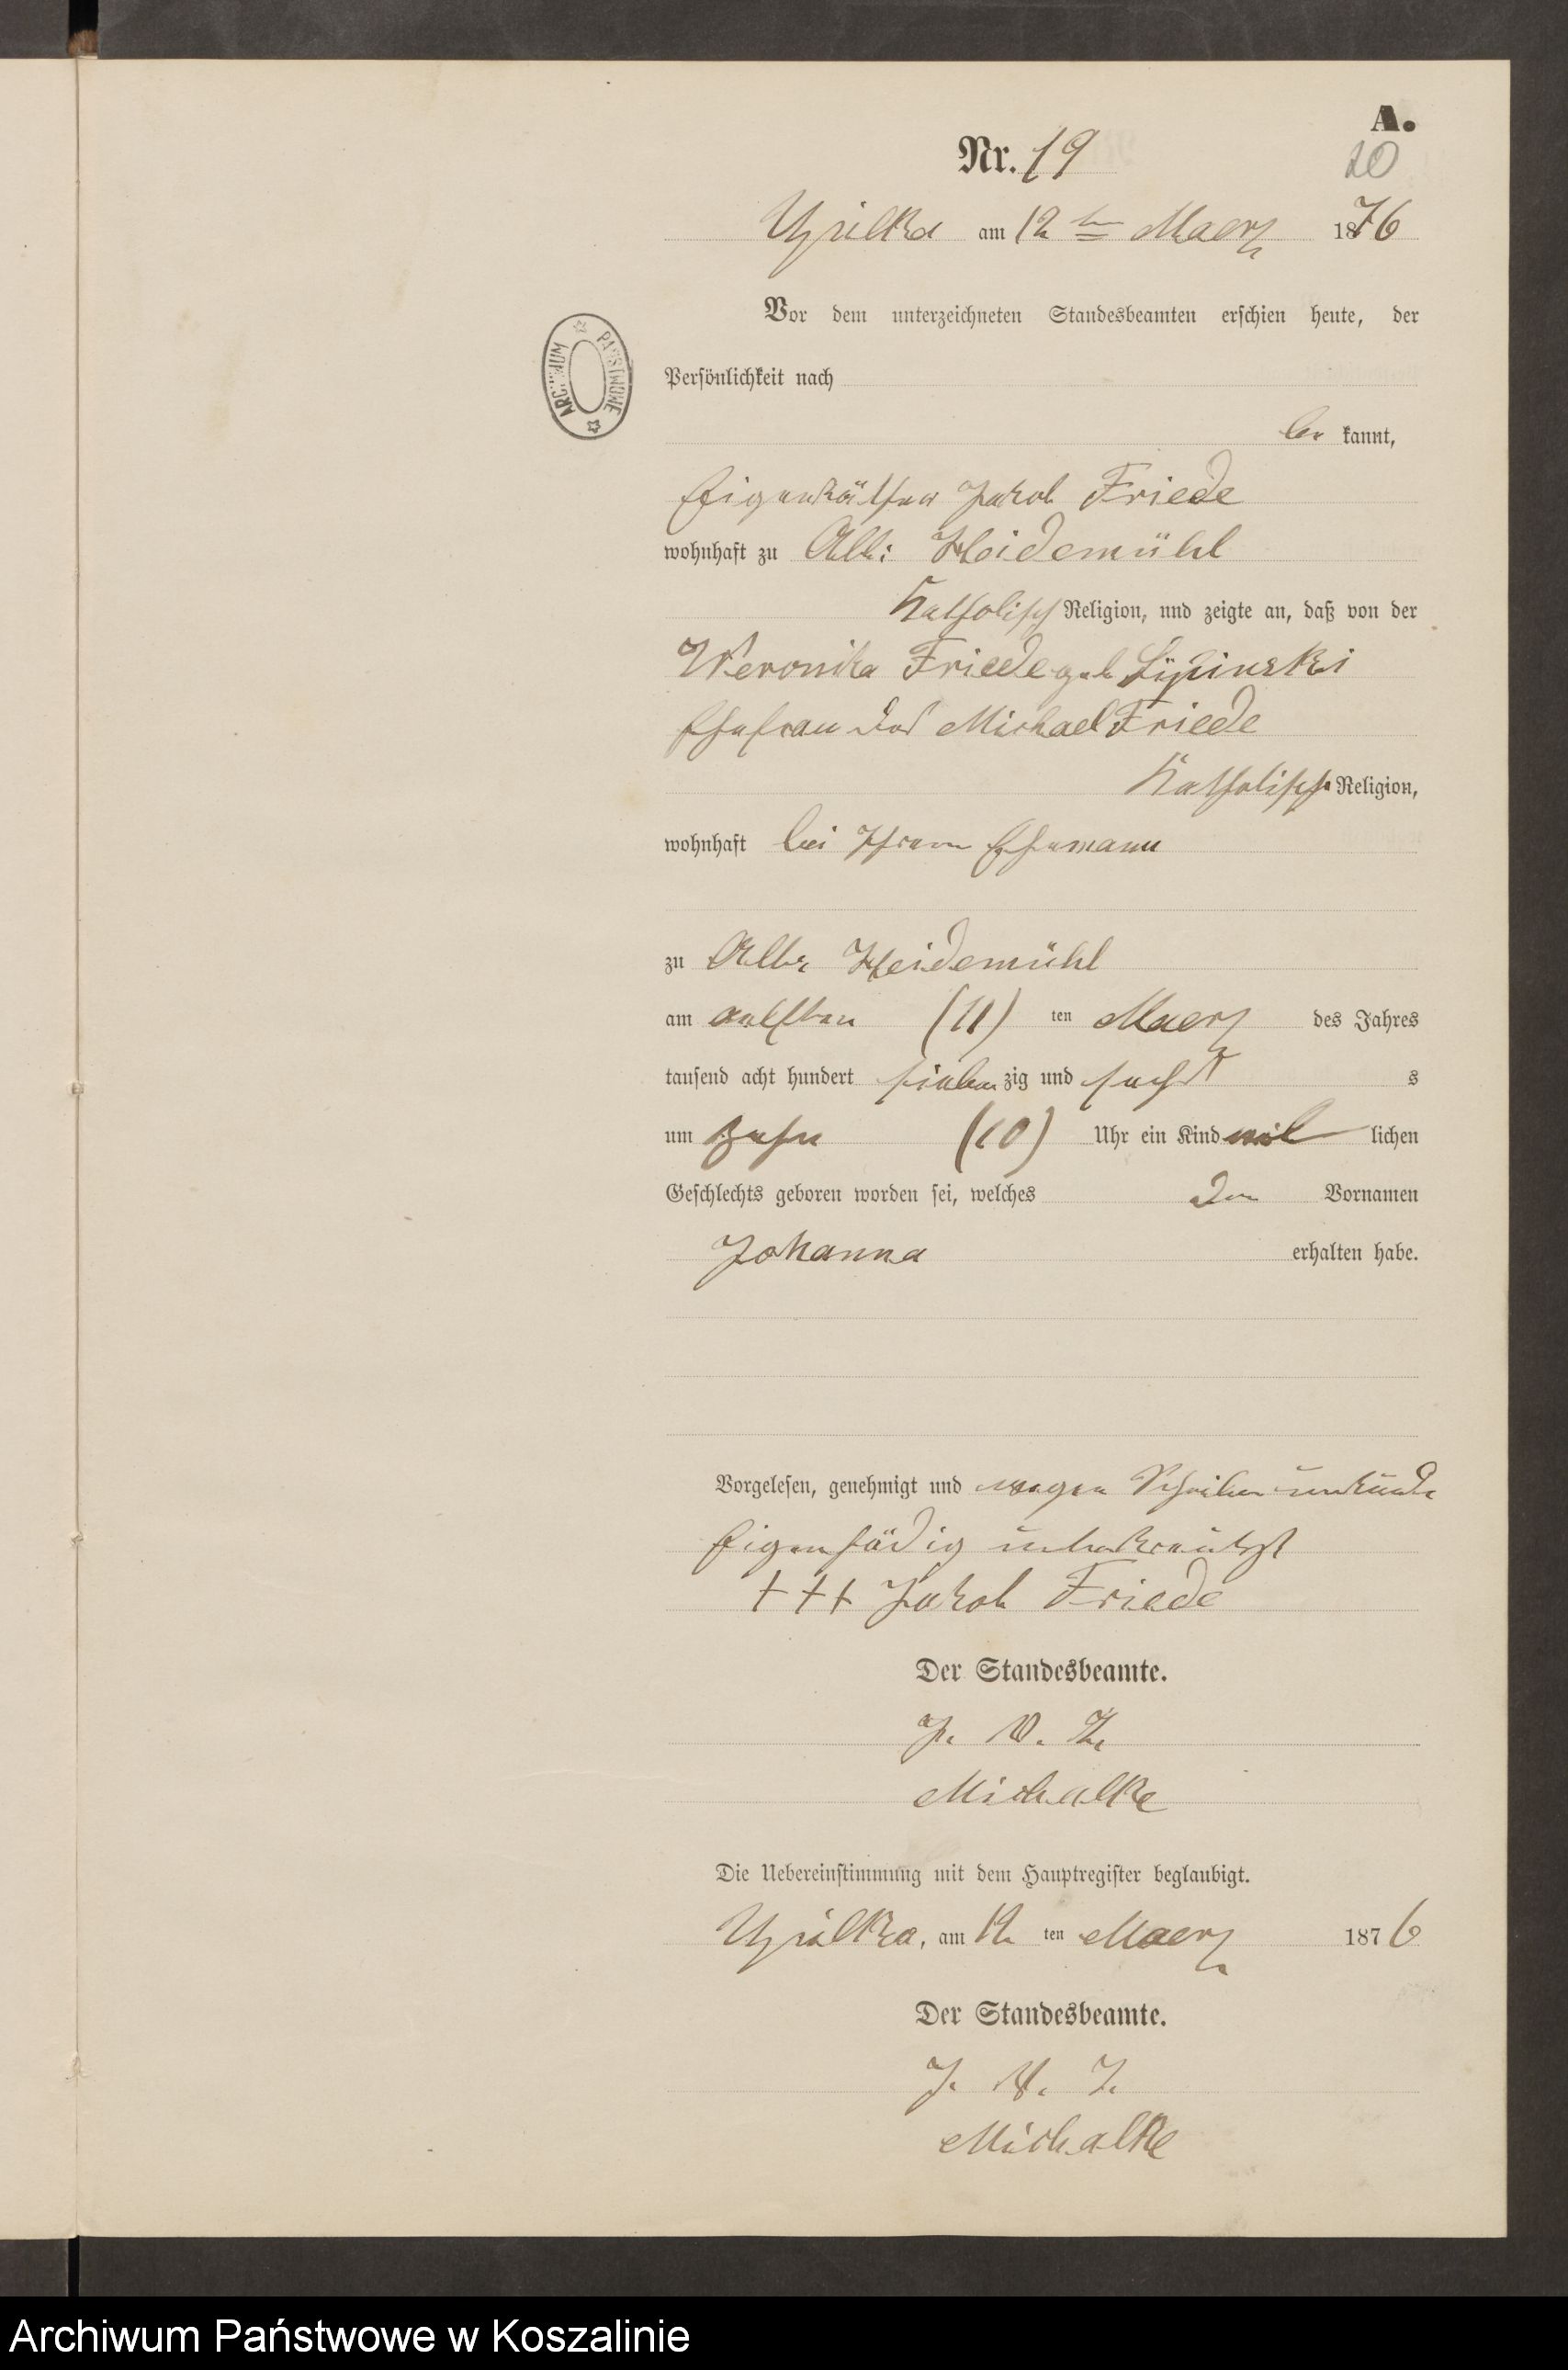 A.
Nr. 19
20
am 12 ten Maerz 1876
Vor dem unterzeichneten Standesbeamten erschien heute, der
Persönlichkeit nach
be kannt,
Eigenkäthner Jakob Friede
wohnhaft zu Alt: Heidemühl
Katholisch Religion, und zeigte an, daß von der
Weronika Friede geb Lipinski
Ehefrau des Michael Friede
Katholische Religion,
wohnhaft bei Ihrem Ehemann
zu Alt: Heidemühl
am (11) ten Maerz des Jahres
tausend acht hundert sieben zig und sechs s
um Zehn (10) Uhr ein Kind lichen
Geschlechts geboren worden sei, welches den Vornamen
Johanna erhalten habe.
Vorgelesen, genehmigt und wegen Schreibensunkunde
unterkreutzt
+++ Jakob Friede
Der Standesbeamte.
J. V.
Michalke
Die Uebereinstimmung mit dem Hauptregister beglaubigt.
am 12 ten Maerz 1876
Der Standesbeamte.
J. V.
Michalke
ARCHIWUM PAŃSTWOWE
Archiwum Państwowe w Koszalinie